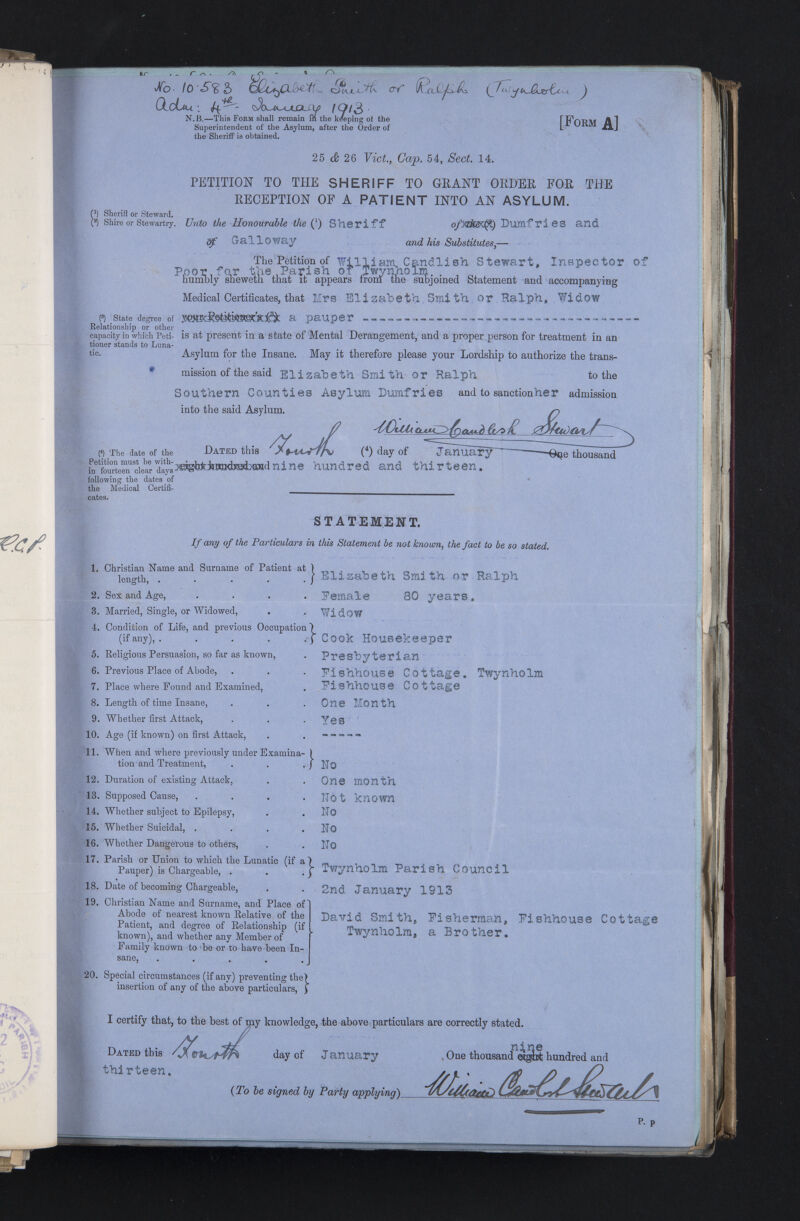 No. 10583 Elizabeth Smith or Ralph (Twynholm)
Adm: 4th January 1913.
N.B.—This Form shall remain in the keeping of the
Superintendent of the Asylum, after the Order of
the Sheriff is obtained.
[Form A]
25 & 26 Vict., Cap. 54, Sect. 14.
PETITION TO THE SHERIFF TO GRANT ORDER FOR THE
RECEPTION OF A PATIENT INTO AN ASYLUM.
(¹) Sheriff or Steward.
(²) Shire or Stewartry.
Unto the Honourable the (¹) Sheriff of the (²) Dumfries and
of Galloway and his Substitutes,—
The Petition of William Candlish Stewart, Inspector of
Poor for the Parish of Twynholm
humbly sheweth that it appears from the subjoined Statement and accompanying
Medical Certificates, that Mrs Elizabeth Smith or Ralph, Widow
(³) State degree of
Relationship or other
capacity in which Peti-
tioner stands to Luna-
tic.
your Petitioner's (³) a pauper ----------------------------------
is at present in a state of Mental Derangement, and a proper person for treatment in an
Asylum for the Insane. May it therefore please your Lordship to authorize the trans-
mission of the said Elizabeth Smith or Ralph to the
Southern Counties Asylum Dumfries and to sanction her admission
into the said Asylum.
William Candlish Stewart
(⁴) The date of the
Petition must be with-
in fourteen clear days
following the dates of
the Medical Certifi-
cates.
Dated this Fourth (⁴) day of January One thousand
eight hundred and nine hundred and thirteen.
STATEMENT.
If any of the Particulars in this Statement be not known, the fact to be so stated.
1. Christian Name and Surname of Patient at
length, . . . . . Elizabeth Smith or Ralph
2. Sex and Age, . . . . Female 80 years.
3. Married, Single, or Widowed, . . Widow
4. Condition of Life, and previous Occupation
(if any), . . . . . Cook Housekeeper
5. Religious Persuasion, so far as known, . Presbyterian
6. Previous Place of Abode, . . . Fishhouse Cottage. Twynholm
7. Place where Found and Examined, . Fishhouse Cottage
8. Length of time Insane, . . . One Month
9. Whether first Attack, . . . Yes
10. Age (if known) on first Attack, . . -----
11. When and where previously under Examina-
tion and Treatment, . . . No
12. Duration of existing Attack, . . One month
13. Supposed Cause, . . . . Not known
14. Whether subject to Epilepsy, . . No
15. Whether Suicidal, . . . . No
16. Whether Dangerous to others, . . No
17. Parish or Union to which the Lunatic (if a
Pauper) is Chargeable, . . . Twynholm Parish Council
18. Date of becoming Chargeable, . . 2nd January 1913
19. Christian Name and Surname, and Place of
Abode of nearest known Relative of the
Patient, and degree of Relationship (if
known), and whether any Member of
Family known to be or to have been In-
sane, . . . . .
David Smith, Fisherman, Fishhouse Cottage
Twynholm, a Brother.
20. Special circumstances (if any) preventing the
insertion of any of the above particulars,
I certify that, to the best of my knowledge, the above particulars are correctly stated.
Dated this Fourth day of January, One thousand eight nine hundred and
thirteen.
(To be signed by Party applying) William Candlish Stewart
P. P